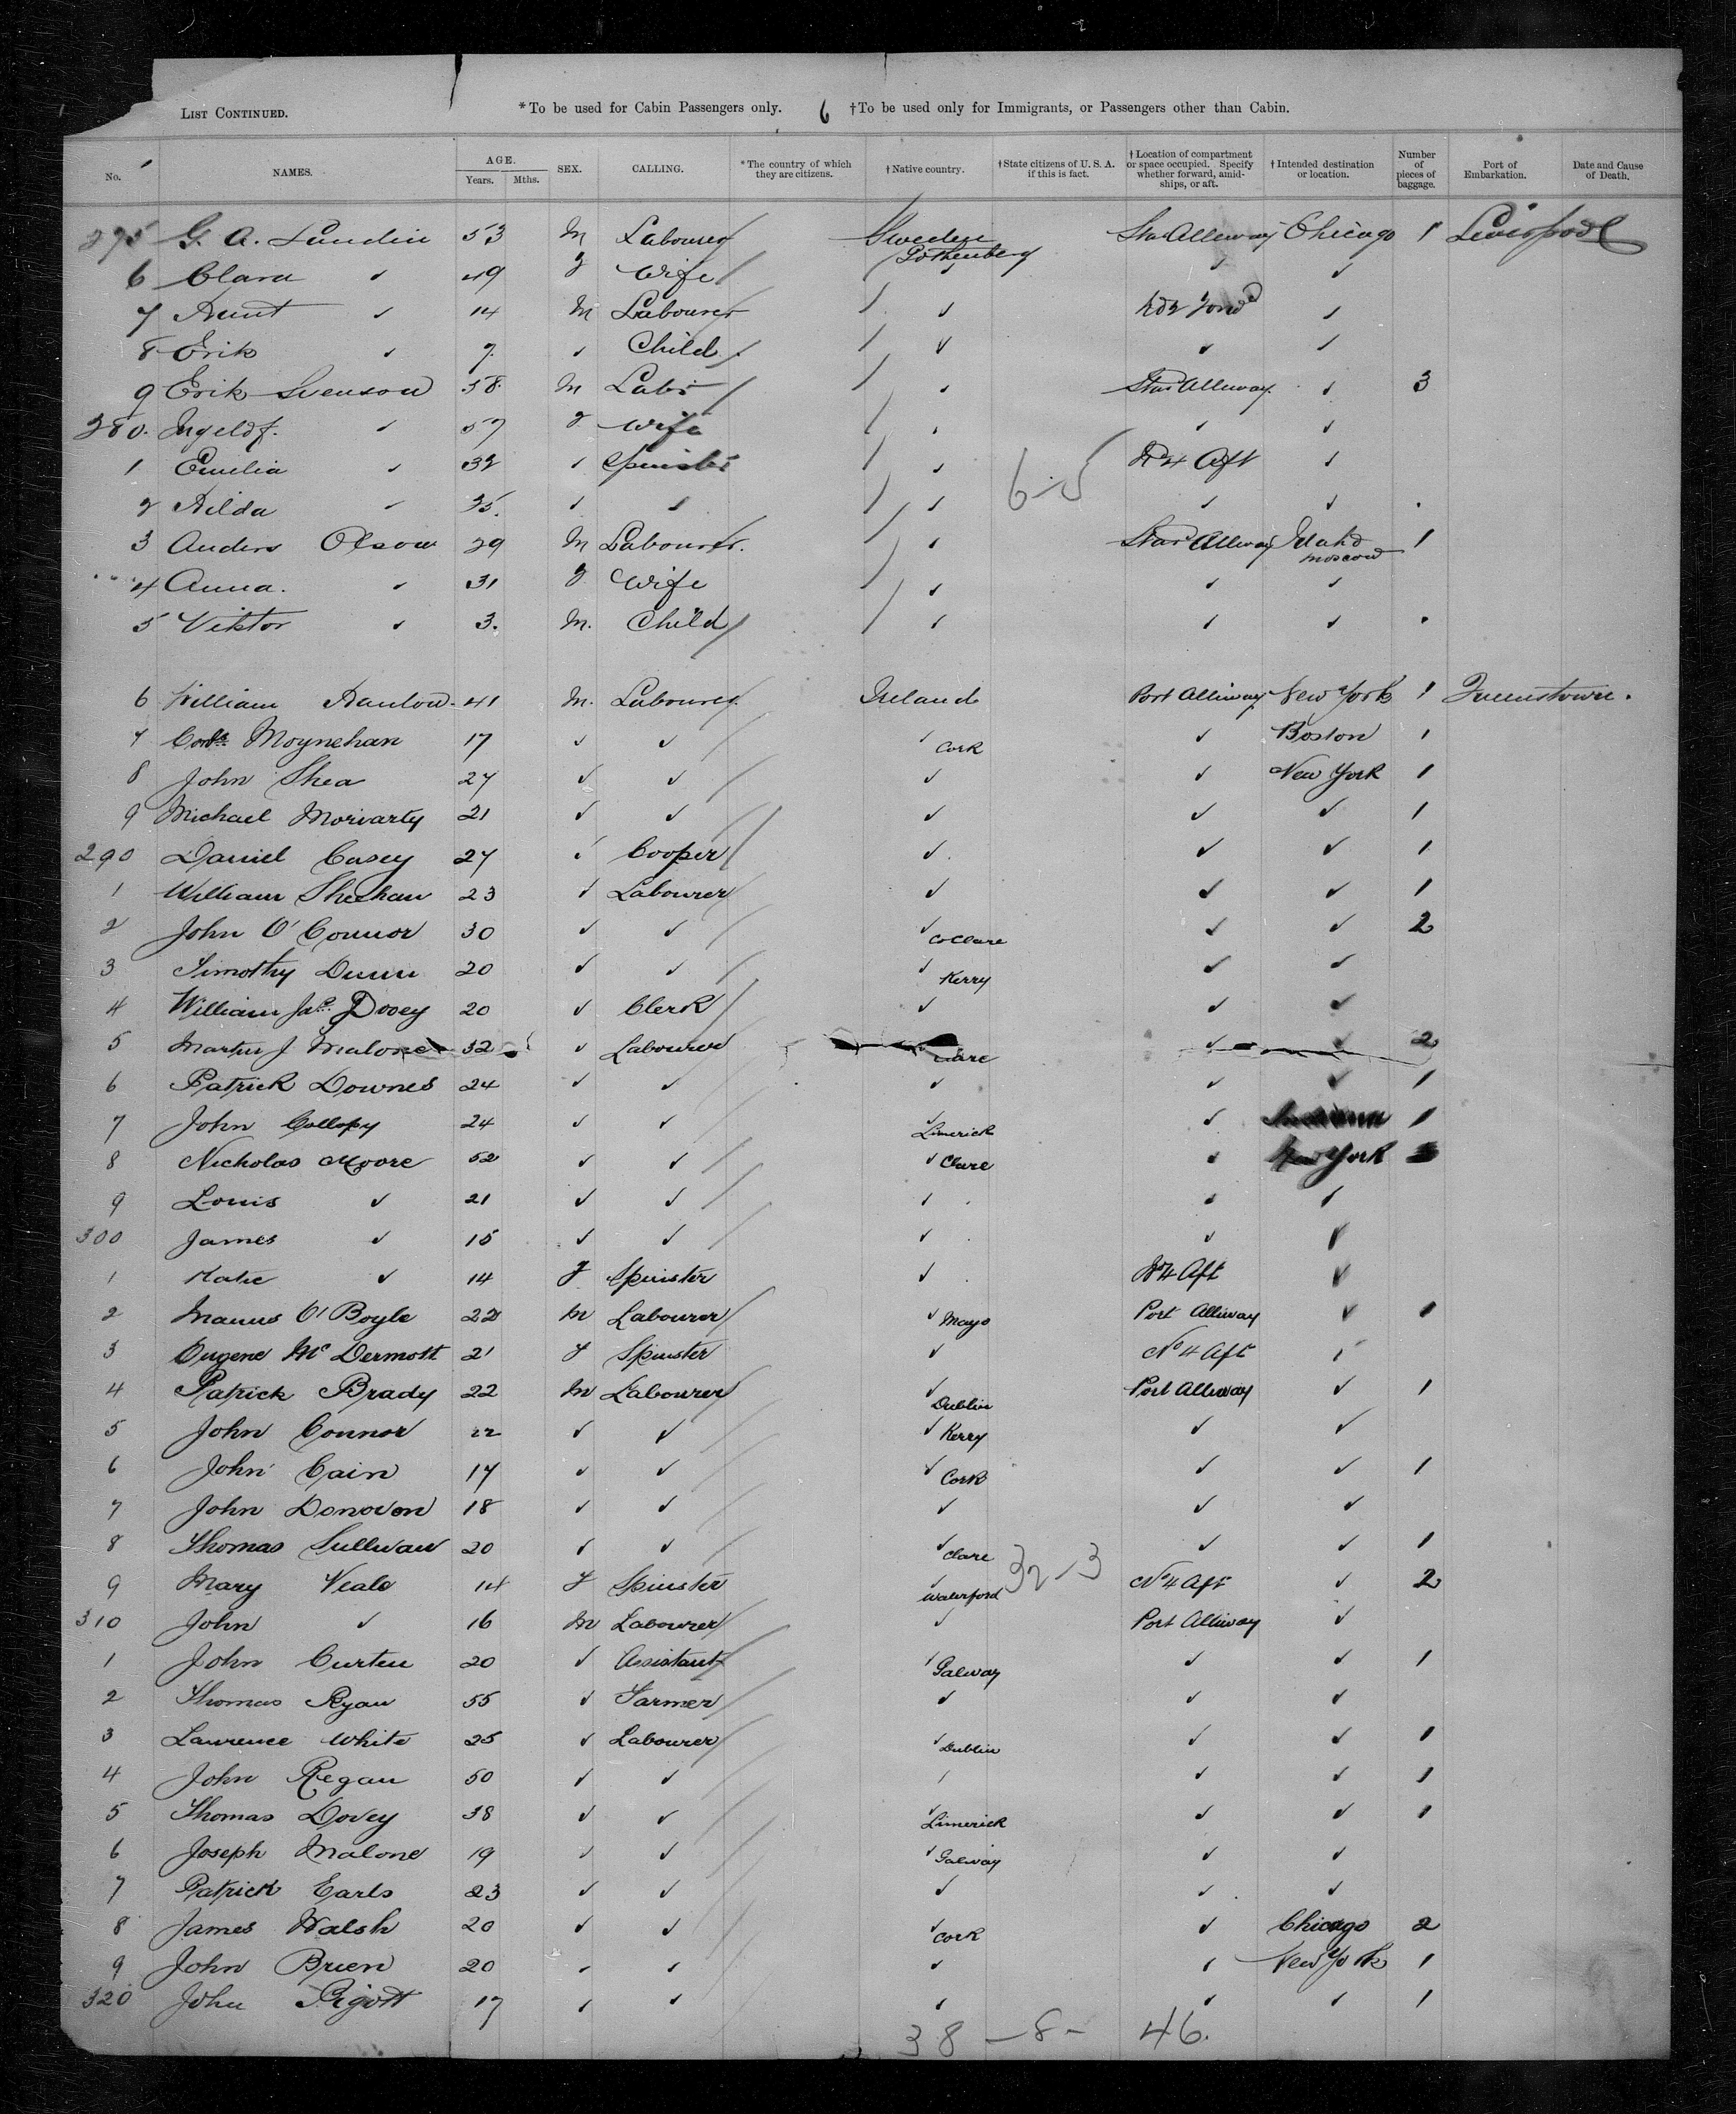 LIST CONTINUED. *To be used for Cabin Passengers only. 6 †To be used only for Immigrants, or Passengers other than Cabin.
No. NAMES. AGE. Years. Mths. SEX. CALLING. *The country of which they are citizens. †Native country. †State citizens of U. S. A. if this is fact. †Location of compartment or space occupied. Specify whether forward, amidships, or aft. †Intended destination or location. Number of pieces of baggage. Port of Embarkation. Date and Cause of Death.
275 G. A. Lundin 53 M Labourer Sweden Gothenberg Star Alleway Chicago 1 Liverpool
6 Clara ✓ 49 f Wife ✓ ✓ ✓
7 ✓ 14 M Labourer ✓ ✓
8 Erik ✓ 7 ✓ Child ✓ ✓ ✓
9 Erik Svenson 58 M Labr ✓ Star Alleway ✓ 3
280. ✓ 57 f Wife ✓ ✓ ✓
1 Emilia ✓ 32 ✓ Spinster ✓ 6-5 No 4 Aft ✓
2 Hilda ✓ 25. ✓ ✓ ✓ ✓ ✓
3 Anders Olsson 29 M Labourer. ✓ Star Alleway Idaho Moscow 1
4 Anna. ✓ 31 f Wife ✓ ✓ ✓
5 Viktor ✓ 3. M. Child ✓ ✓ ✓
6 William Hanlon 41 M. Labourer Ireland Port Alleway New York 1 Queenstown.
7 Corns. Moynehan 17 ✓ ✓ ✓ Cork ✓ Boston 1
8 John Shea 27 ✓ ✓ ✓ ✓ New York 1
9 Michael Moriarty 21 ✓ ✓ ✓ ✓ ✓ 1
290 Daniel Casey 27 ✓ Cooper ✓ ✓ ✓ 1
1 William Sheehan 23 ✓ Labourer ✓ ✓ ✓ 1
2 John O'Connor 30 ✓ ✓ ✓ Co Clare ✓ ✓ 2
3 Timothy Dunn 20 ✓ ✓ ✓ Kerry ✓ ✓
4 William Jas. Dovey 20 ✓ Clerk ✓ ✓ ✓
5 Martin J Malone 32 ✓ Labourer Clare ✓ ✓ 2
6 Patrick Downes 24 ✓ ✓ ✓ ✓ ✓ 1
7 John Collopy 24 ✓ ✓ ✓ Limerick ✓ Indiana 1
8 Nicholas Moore 52 ✓ ✓ ✓ Clare ✓ New York
9 Louis ✓ 21 ✓ ✓ ✓ ✓ ✓
300 James ✓ 15 ✓ ✓ ✓ ✓ ✓
1 Katie ✓ 14 f Spinster ✓ No 4 Aft ✓
2 Manus O'Boyle 22 M Labourer ✓ Mayo Port Alleway ✓ 1
3 Eugene McDermott 21 f Spinster ✓ No 4 Aft ✓
4 Patrick Brady 22 M Labourer ✓ Dublin Port Alleway ✓ 1
5 John Connor 22 ✓ ✓ ✓ Kerry ✓ ✓
6 John Cain 17 ✓ ✓ ✓ Cork ✓ ✓ 1
7 John Donovon 18 ✓ ✓ ✓ ✓ ✓
8 Thomas Sullivan 20 ✓ ✓ ✓ Clare ✓ ✓ 1
9 Mary Veale 14 f Spinster ✓ Waterford 32-3 No 4 Aft ✓ 2
310 John ✓ 16 M Labourer ✓ Port Alleway ✓
1 John Curtin 20 ✓ Assistant ✓ Galway ✓ ✓ 1
2 Thomas Ryan 55 ✓ Farmer ✓ ✓ ✓
3 Lawrence White 25 ✓ Labourer ✓ Dublin ✓ ✓ 1
4 John Regan 50 ✓ ✓ ✓ ✓ ✓ 1
5 Thomas Dovey 38 ✓ ✓ ✓ Limerick ✓ ✓ 1
6 Joseph Malone 19 ✓ ✓ ✓ Galway ✓ ✓
7 Patrick Earls 23 ✓ ✓ ✓ ✓ ✓
8 James Walsh 20 ✓ ✓ ✓ Cork ✓ Chicago 2
9 John Brien 20 ✓ ✓ ✓ ✓ New York 1
320 John Pigott 17 ✓ ✓ ✓ ✓ ✓ 1
38 - 8 - 46.